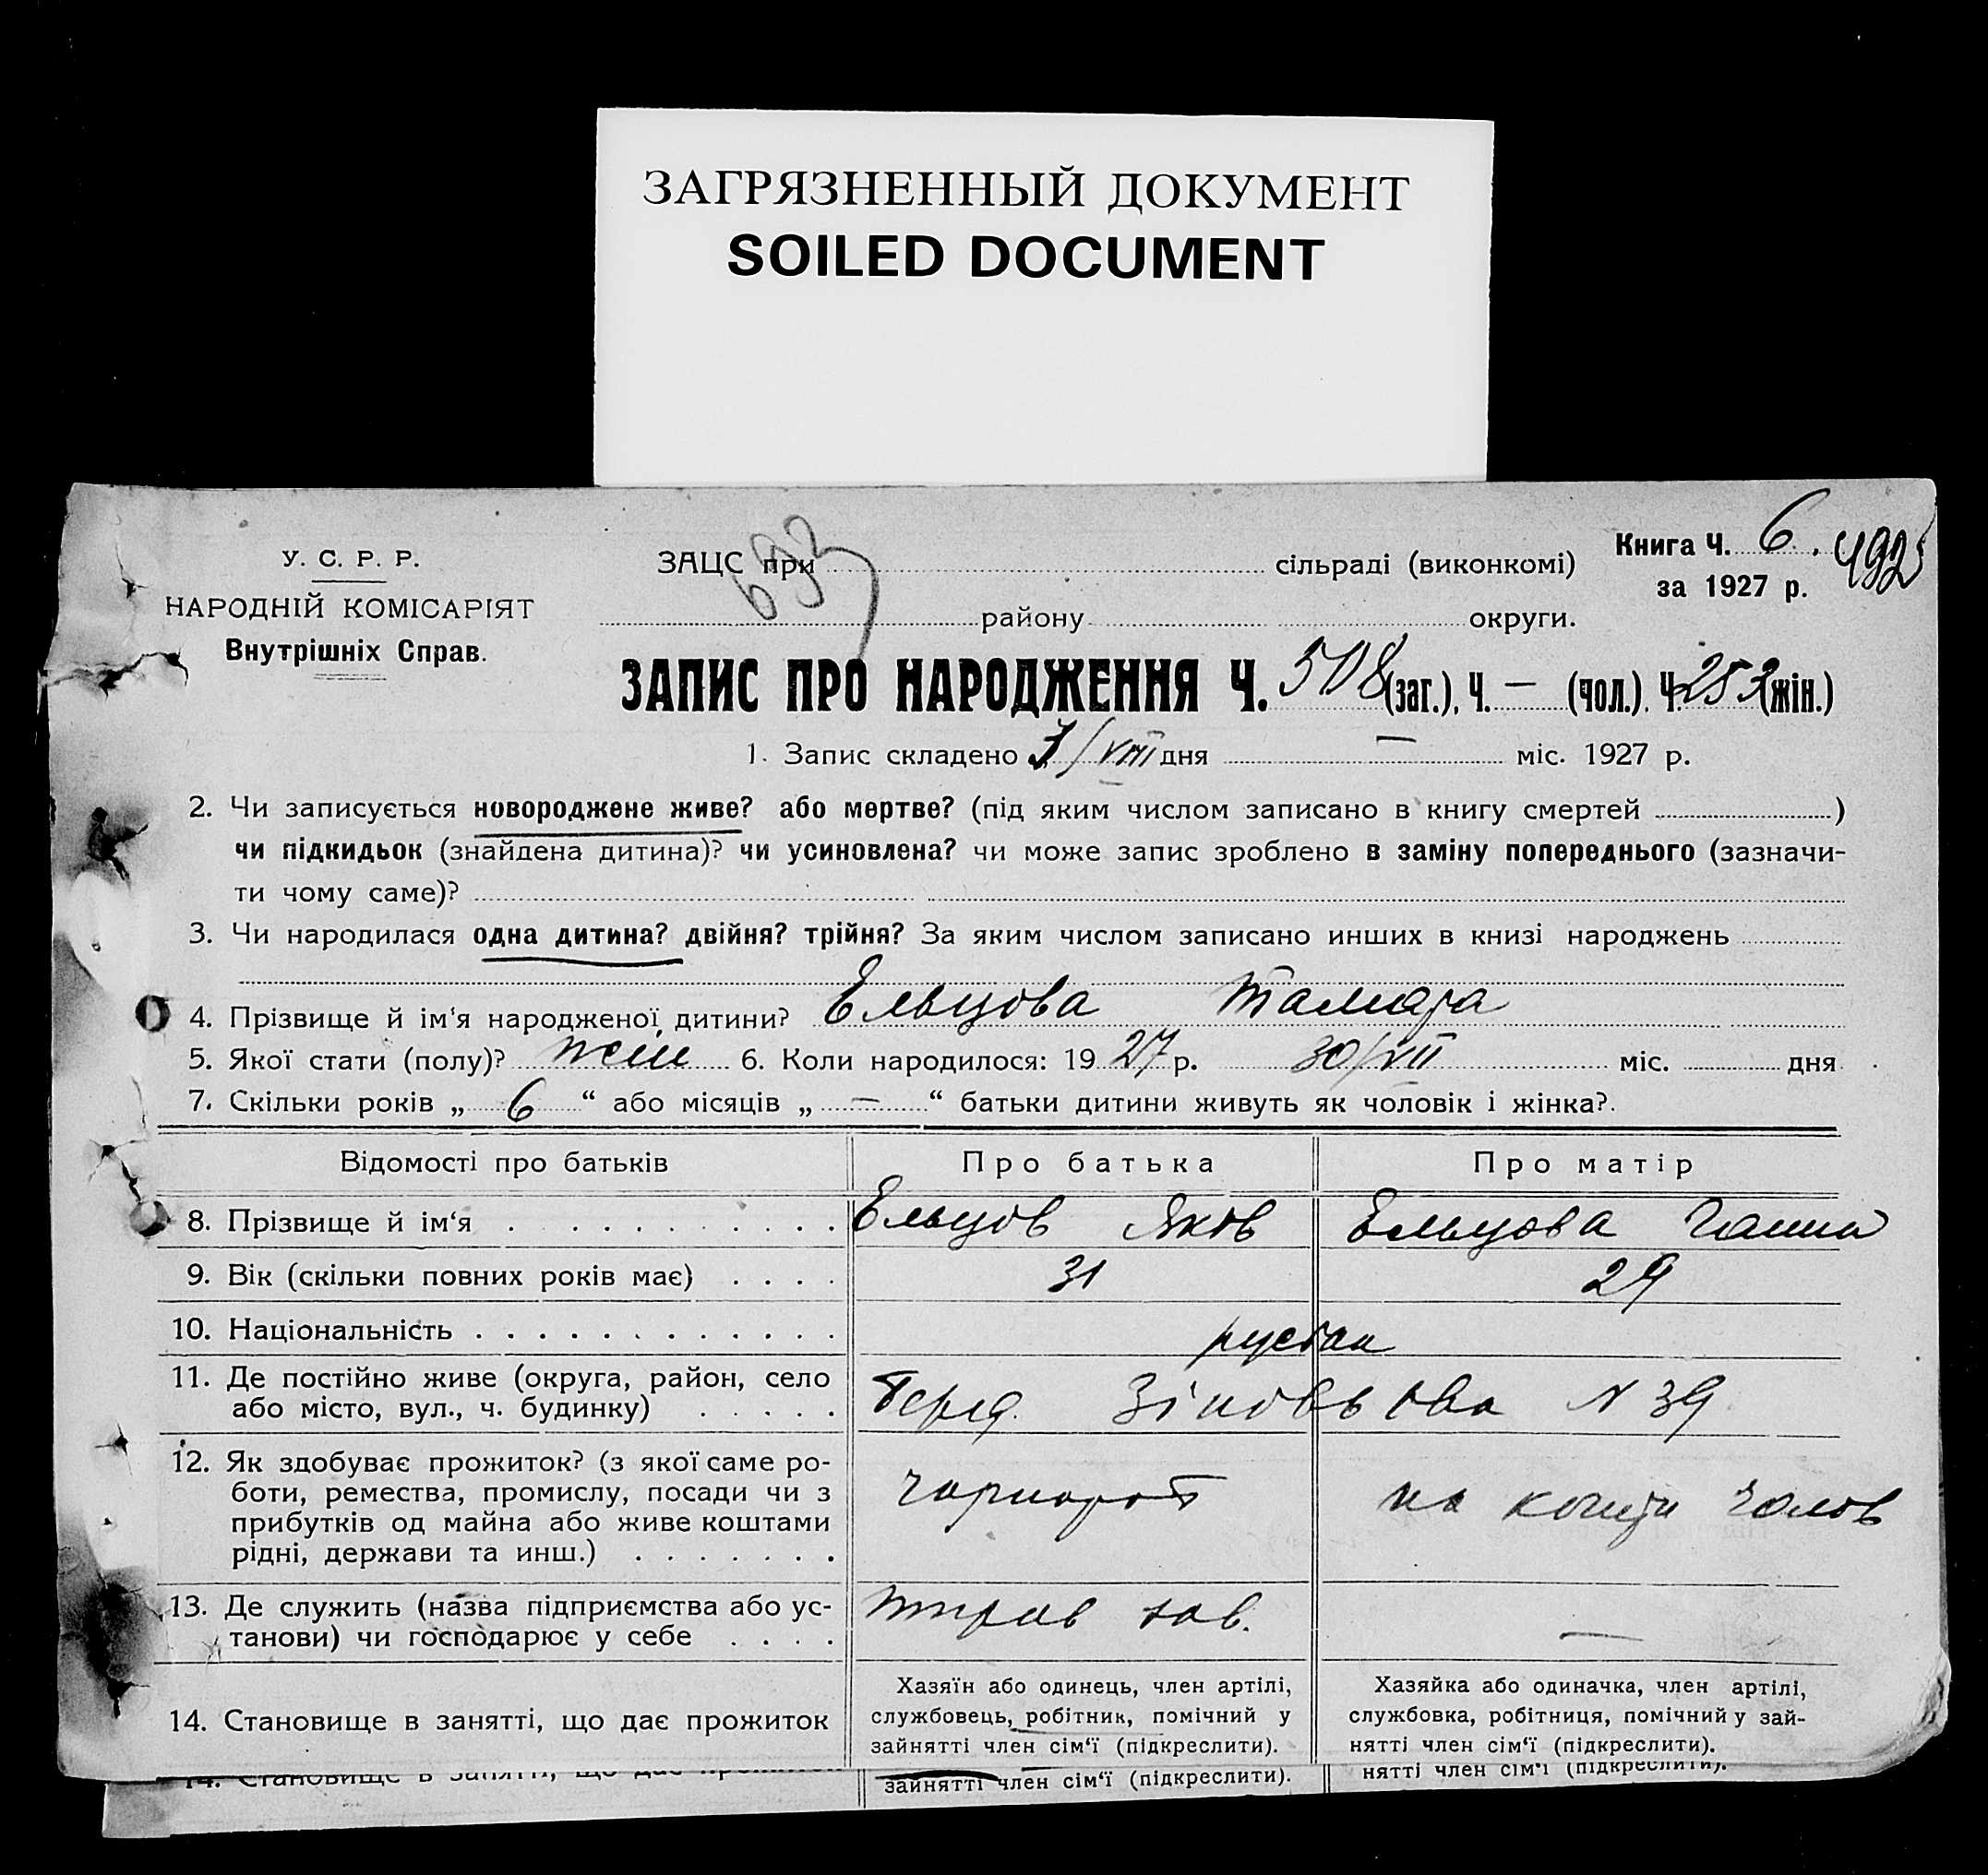 ЗАГРЯЗНЕННЫЙ ДОКУМЕНТ
SOILED DOCUMENT
У. С. Р. Р.
НАРОДНІЙ КОМІСАРІЯТ
Внутрішніх Справ.
693
ЗАЦС при сільраді (виконкомі)
району округи.
Книга Ч. 6.
за 1927 р.
ЗАПИС ПРО НАРОДЖЕННЯ Ч. 508 (заг.), Ч. — (чол.). Ч. 253 (жін.)
1. Запис складено „ 7/VIII дня — міс. 1927 р.
2. Чи записується новороджене живе? або мертве? (під яким числом записано в книгу смертей )
чи підкидьок (знайдена дитина)? чи усиновлена? чи може запис зроблено в заміну попереднього (зазначи-
ти чому саме)?
3. Чи народилася одна дитина? двійня? трійня? За яким числом записано инших в книзі народжень
4. Прізвище й ім'я народженої дитини? Ельцова Тамара
5. Якої стати (полу)? жін 6. Коли народилося: 1927 р. 30/VII міс. дня
7. Скільки років „ 6 “ або місяців „ — “ батьки дитини живуть як чоловік і жінка?
Відомості про батьків Про батька Про матір
8. Прізвище й ім'я Ельцов Яков Ельцова Ганна
9. Вік (скільки повних років має) 31 29
10. Національність
11. Де постійно живе (округа, район, село
або місто, вул., ч. будинку) Зіновьева N 39
12. Як здобуває прожиток? (з якої саме ро-
боти, ремества, промислу, посади чи з
прибутків од майна або живе коштами
рідні, держави та инш.) чорнороб на кошти чолов
13. Де служить (назва підприємства або ус-
танови) чи господарює у себе зав. —
14. Становище в занятті, що дає прожиток
Хазяїн або одинець, член артілі,
службовець, робітник, помічний у
зайнятті член сім'ї (підкреслити).
Хазяйка або одиначка, член артілі,
службовка, робітниця, помічний у зай-
нятті член сім'ї (підкреслити).
14. Становище в занятті, що дає прожиток
зайнятті член сім'ї (підкреслити).
нятті член сім'ї (підкреслити).